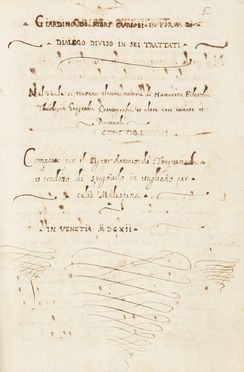 GIARDINO DI FIORI CURIOSI IN FORMA DI
DIALOGO DIVISO IN SEI TRATTATI
Nel quale si trattano alcune materie di Humanità, Filosofia
Theologia Geografia Cosmografia et altre cose curiose et
Piacevoli
Composto per il Signor Antonio de Torquemada
et tradotto di spagnuolo in italiano per
Celio Malespina
IN VENETIA MDCXII